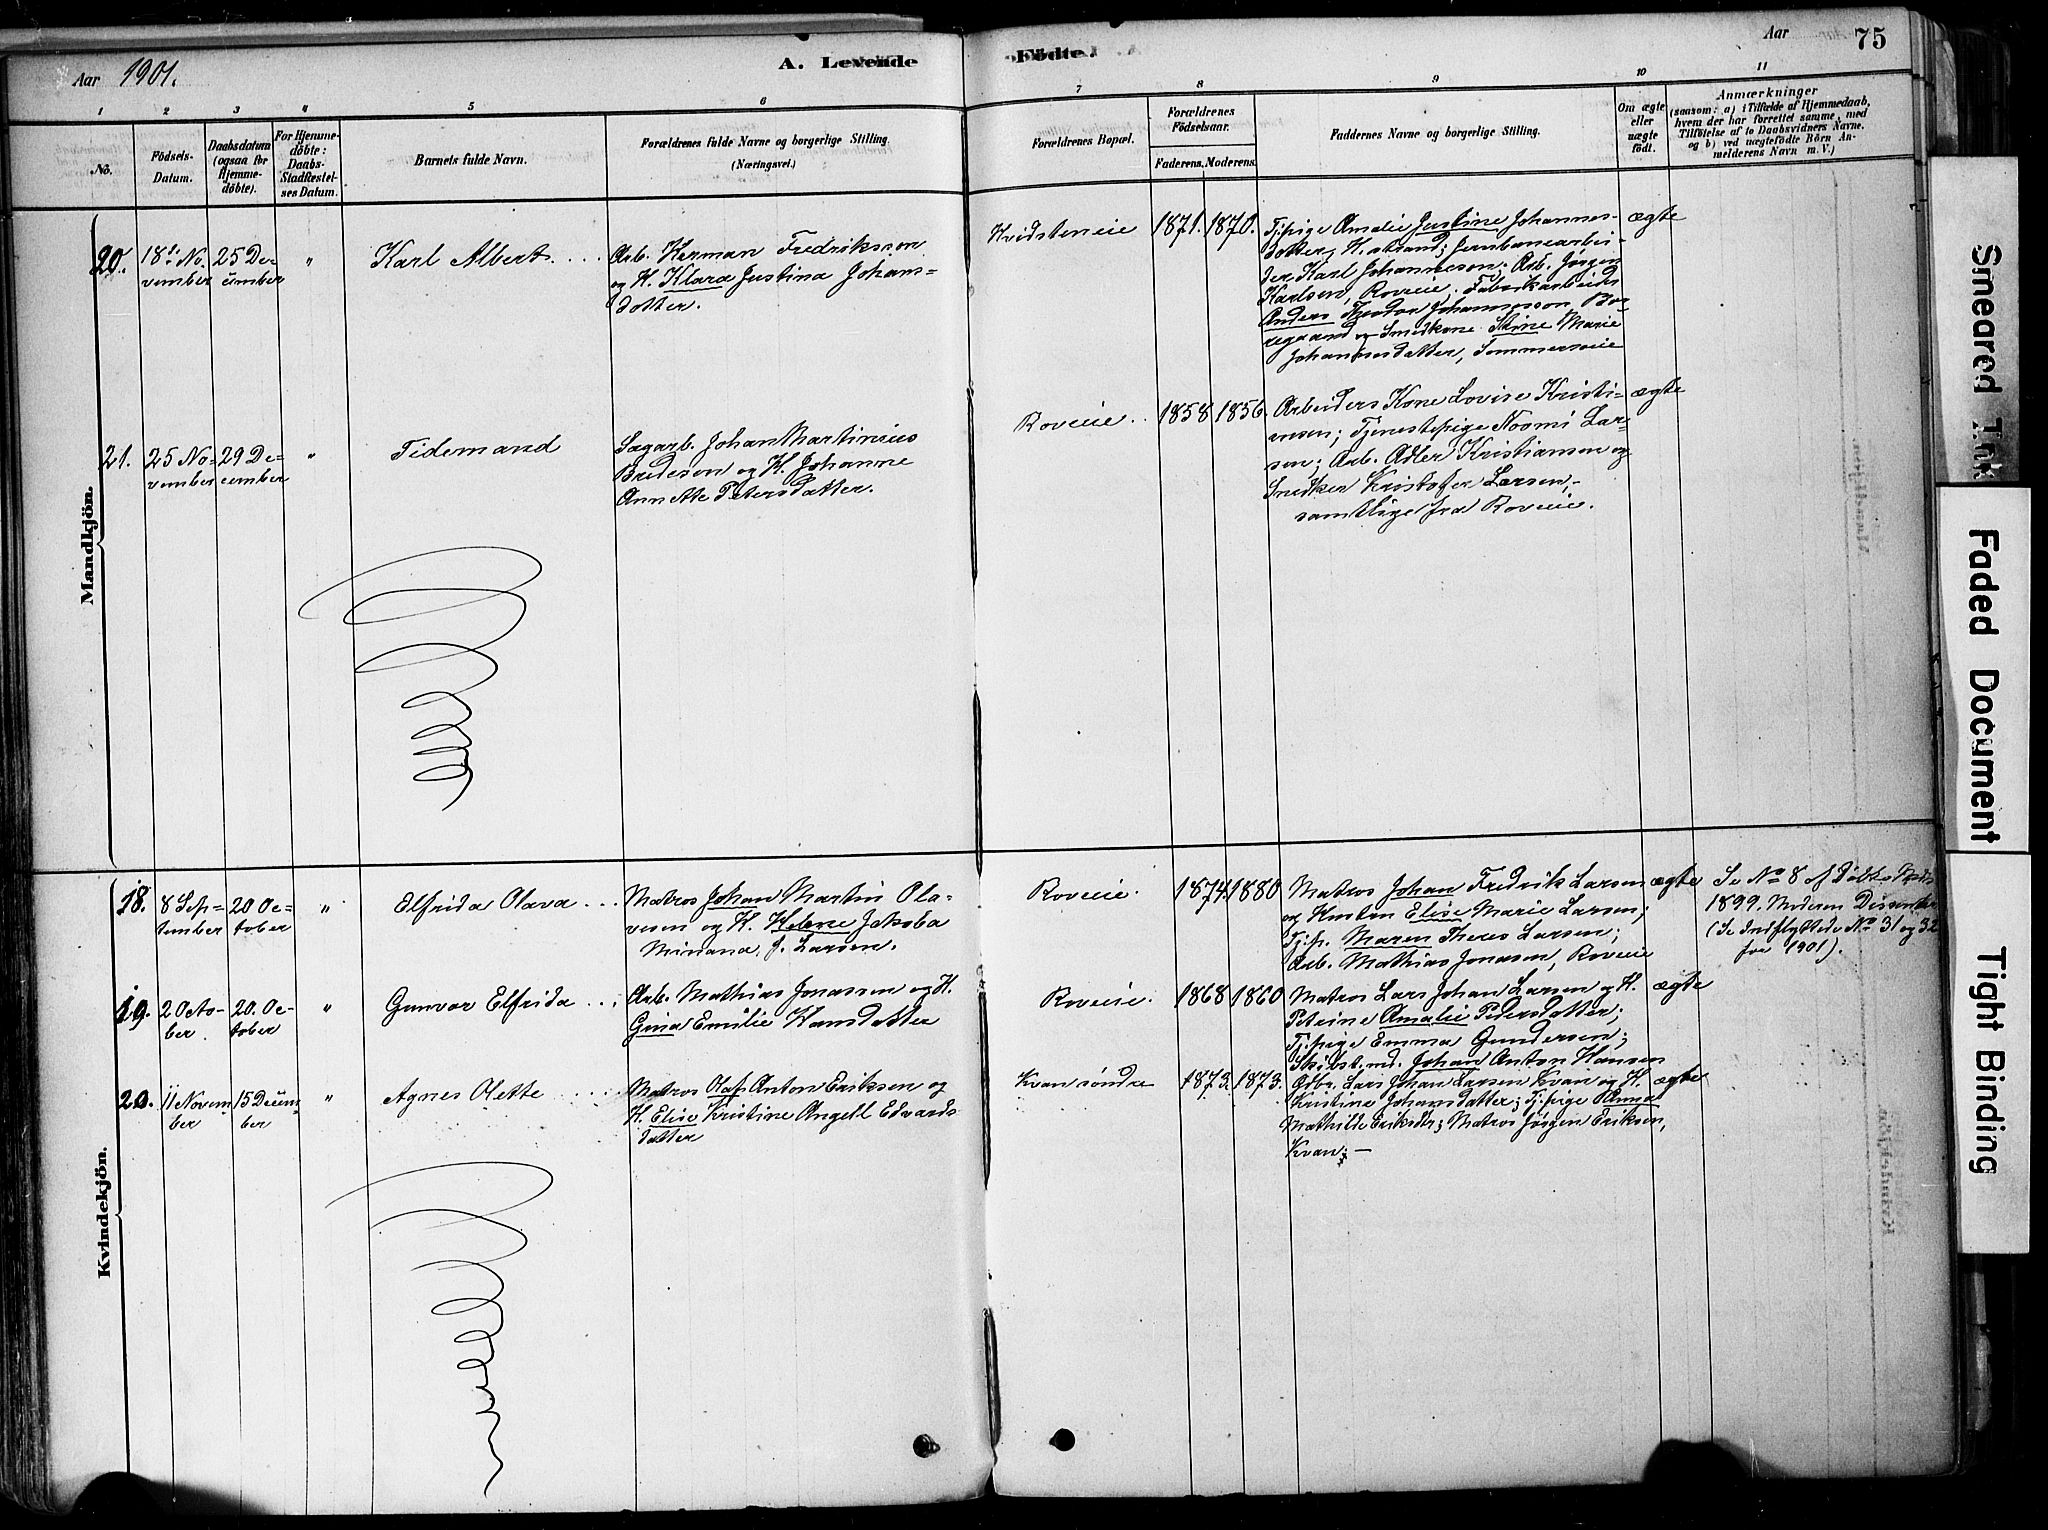 Aar 1901.
A. Levende
Födte.
Aar
75
1
2
3
4
5
6
7
8
9
10
11
No.
Födsels-
Datum.
Daabsdatum
(ogsaa for
Hjemme-
döbte).
For Hjemme-
döbte:
Daabs-
Stadfæstel-
ses Datum.
Barnets fulde Navn.
Forældrenes fulde Navne og borgerlige Stilling.
(Næringsvei.)
Forældrenes Bopæl.
Forældrenes
Födselsaar.
Faderens.
Moderens.
Faddernes Navne og borgerlige Stilling.
Om ægte
eller
uægte
födt.
Anmærkninger
(saasom: a) i Tilfælde af Hjemmedaab,
hvem der har forrettet samme, med
Tilföielse af to Daabsvidners Navne,
og b) ved uægtefödte Börn An-
melderens Navn m. V.)
Mandkjön.
20.
18de No-
vember
25 De-
cember
"
Karl Albert
Arb. Herman Fredriksson
og H. Klara Justina Johans-
dotter.
Kvidsteneie
1871.
1870.
Tj.pige Amalie Justine Johannes-
dotter, H.strand; Jernbanearbei-
der Karl Johanneson; Arb. Jørgen
Karlsen, Roveie. Fabrikarbeider
Anders Theodor Johannesson Bor-
regaard og Smedkone Stine Marie
Johannesdatter, Sommerseie
ægte
21.
25 No-
vember
29 De-
cember
"
Tidemand
Sagarb. Johan Martinius
Bredesen og H. Johanne
Annette Petersdatter.
Roveie
1858
1856.
Arbeiders Kone Lovise Kristi-
ansen; Tjenestepige Noomi Lar-
sen; Arb. Adler Kristiansen og
Snedker Kristofer Larsen,
samtlige fra Roveie.
ægte
Kvindekjön.
18.
8 Sep-
tember
20 Oc-
tober
"
Elfrida Olava
Matros Johan Martin Ola-
vesen og H. Helene Jakoba
Minana f. Larsen.
Roveie.
1874.
1880
Matros Johan Fredrik Larsen
og Hustru Elise Marie Larsen;
Tj.p. Maren Theres Larsen;
Arb. Mathias Jonassen, Roveie
ægte
Se No 8 af Døbte
1899. Moderen Dissenter
(Se Indflyttede No 31 og 32
for 1901).
19.
2 Octo-
ber
20. Oc-
tober
"
Gunvor Elfrida
Arb. Mathias Jonassen og H.
Gina Emilie Hansdatter
Roveie.
1868
1860
Matros Lars Johan Larsen og H.
Petrine Amalie Pedersdatter;
Tj.pige Emma Gundersen;
Skibst.md. Johan Anton Hansen
ægte
20.
11 Novem
ber
15 Decem-
ber
"
Agnes Olette
Matros Olaf Anton Eriksen og
H. Elise Kristine Angell Edvards
datter
Kvan søndre
1873.
1873.
Gdbr. Lars Johan Larsen Kvan og H.
Kristine Johansdatter; Tj.pige Anna
Mathilde Eriksdtr; Matros Jørgen Eriksen,
Kvan. —
ægte
Smeared Ink
Faded Document
Tight Binding